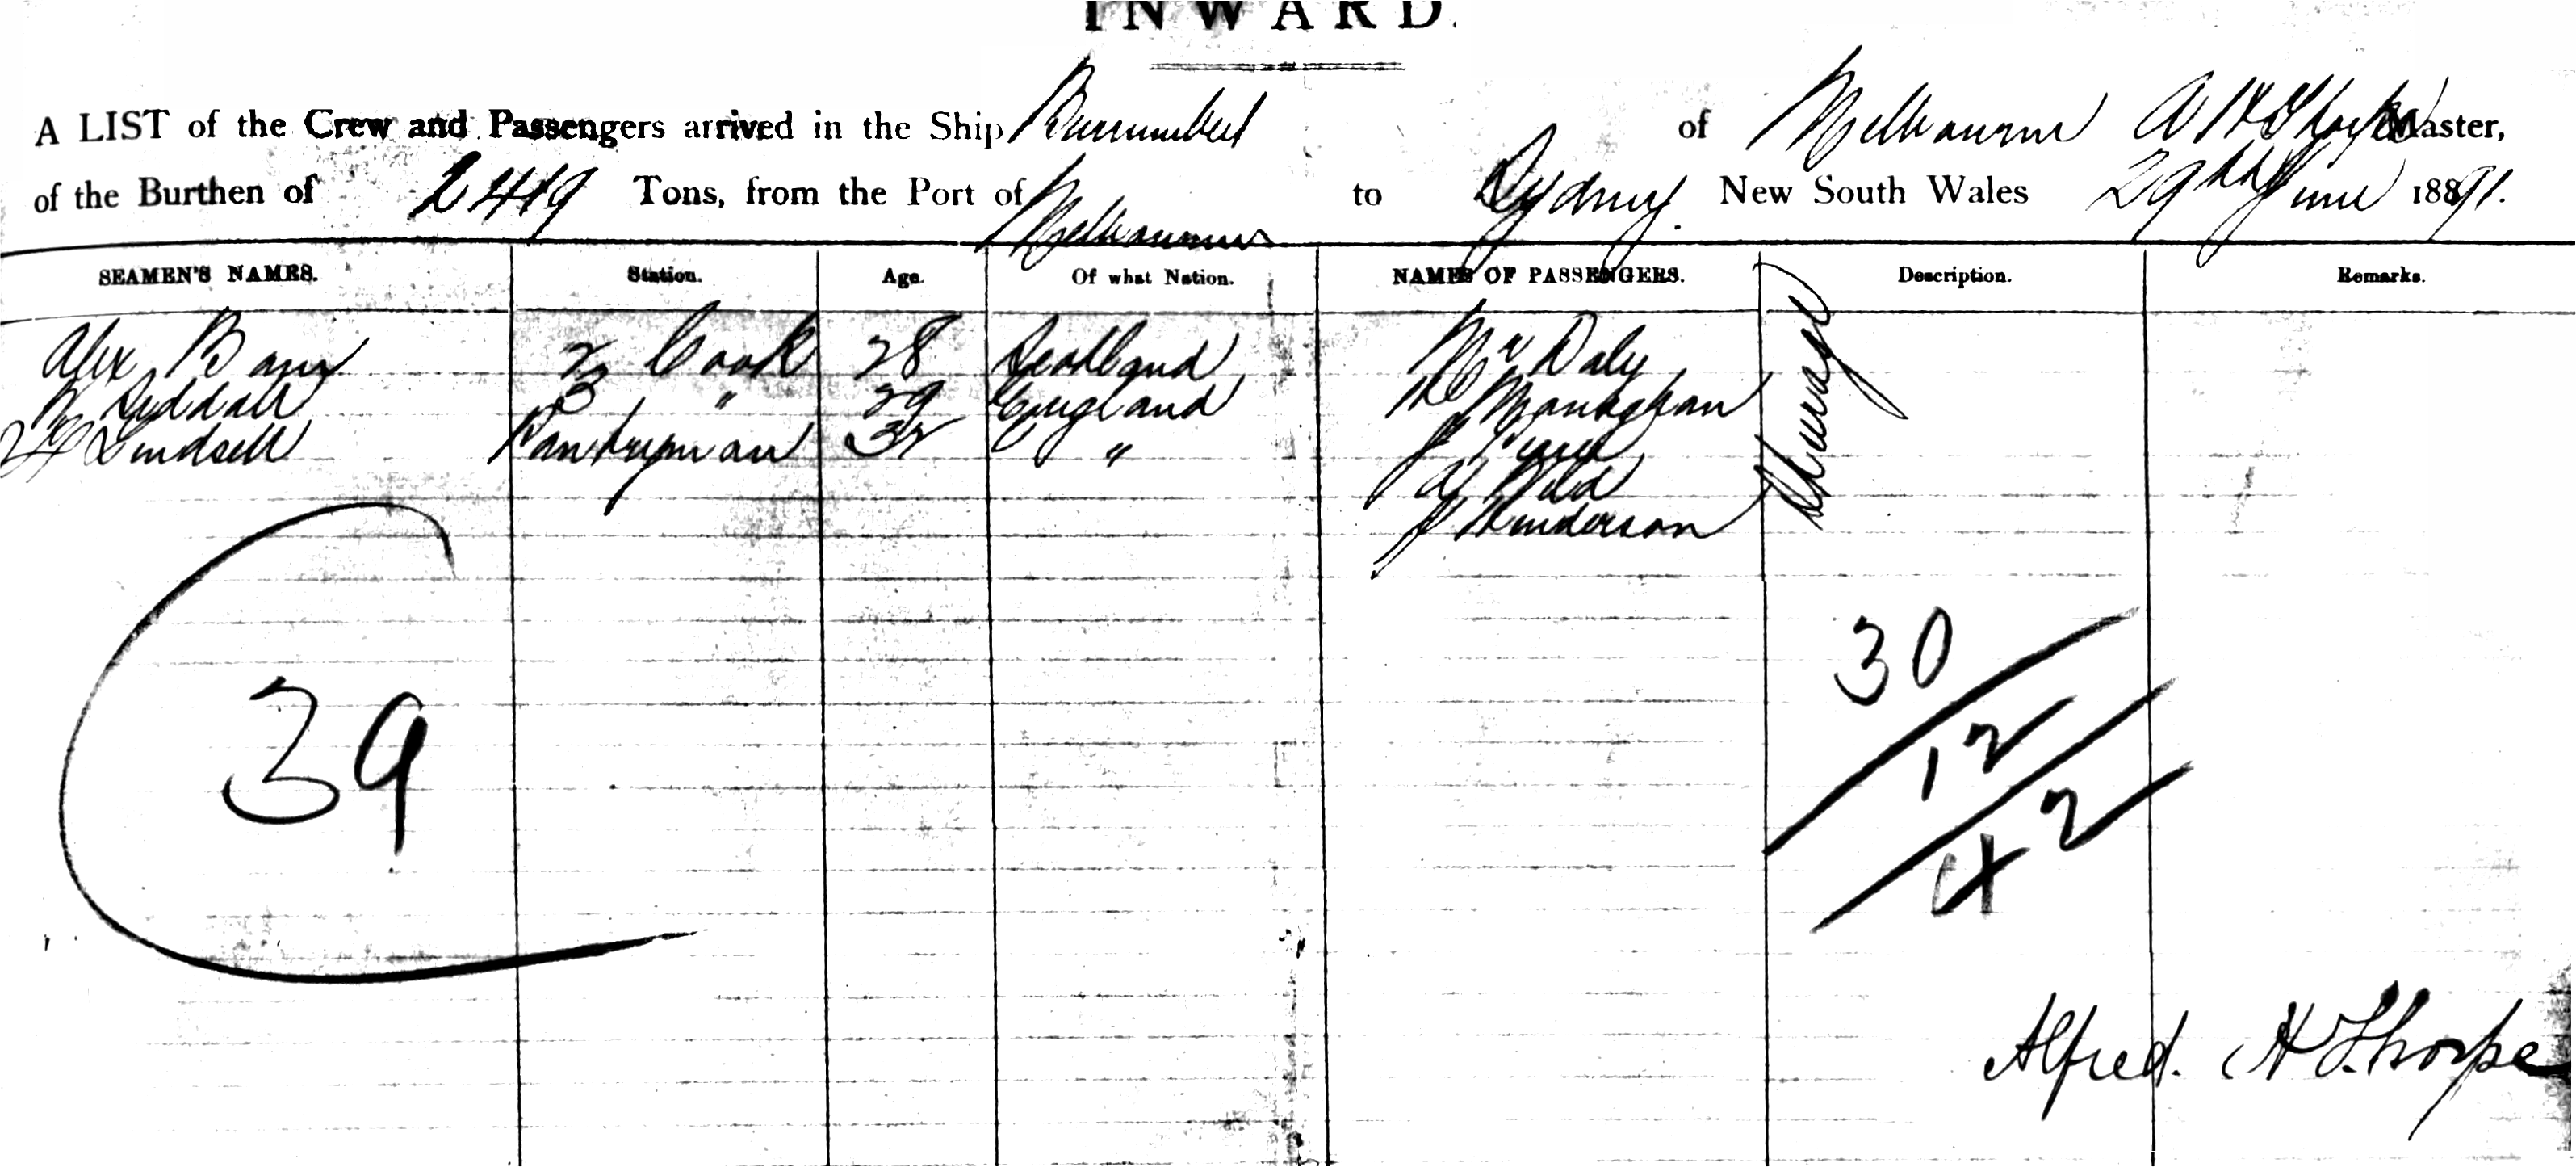 INWARD.
A LIST of the Crew and Passengers arrived in the Ship Burrumbeet of Melbourne A H Thorpe Master,
of the Burthen of 2419 Tons, from the Port of Melbourne to Sydney New South Wales 29th June 1891.
SEAMEN'S NAMES. Station. Age. Of what Nation. NAMES OF PASSENGERS. Description. Remarks.
Alex Bain 2 Cook 28 Scotland Mr Daly Steerage
Siddall 3 " 29 England Monaghan
Lindsell Pantryman 32 " J
A Wild
J Henderson
30
12
42
39
Alfred. H Thorpe